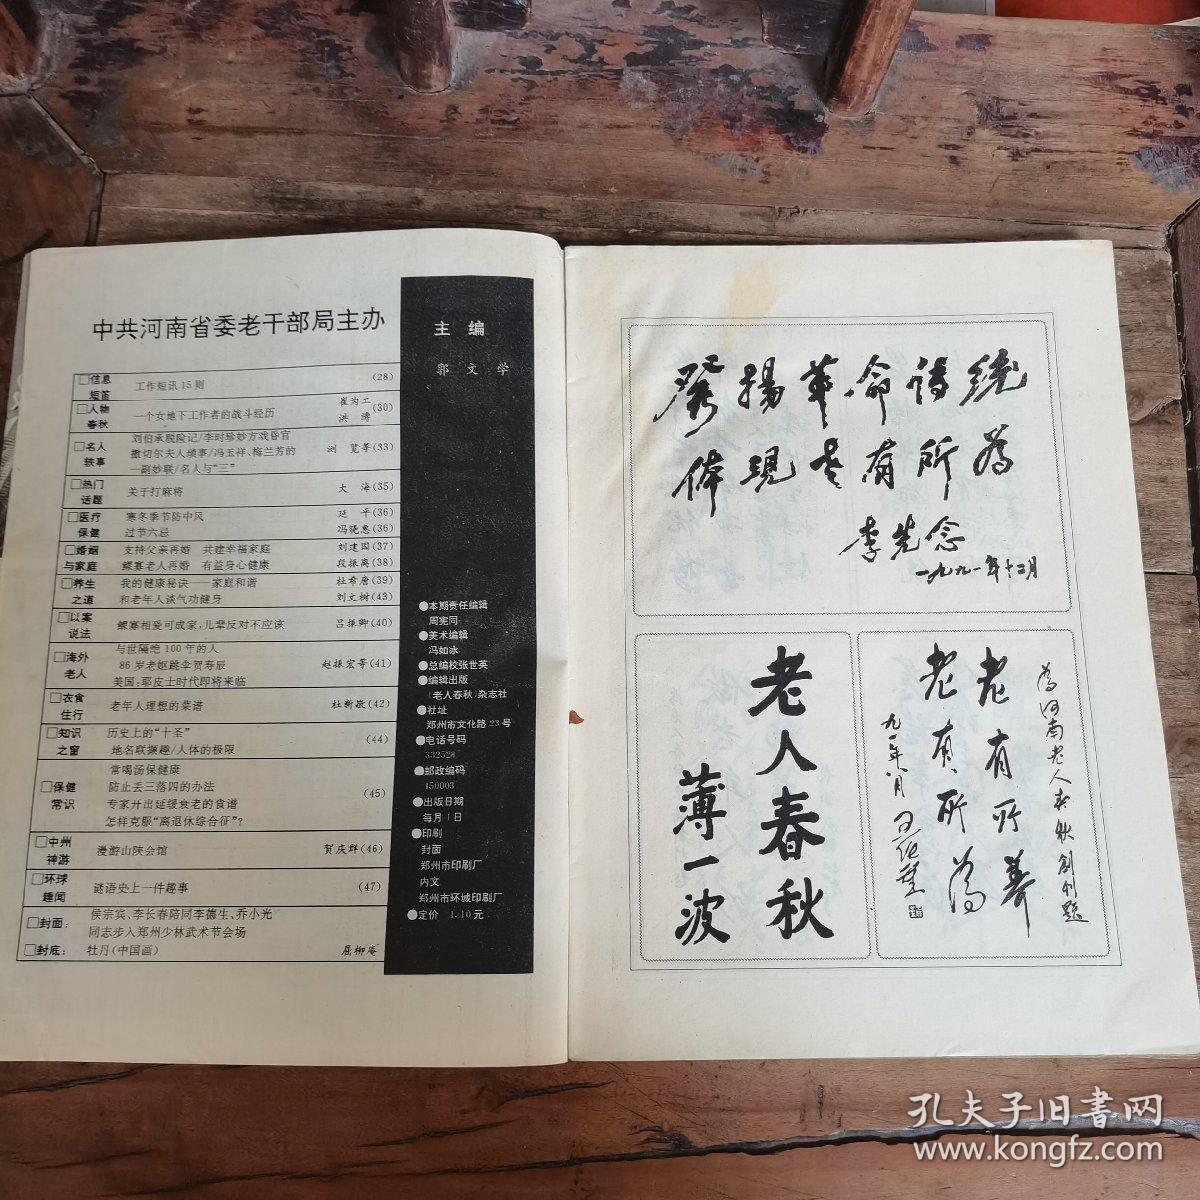 中共河南省委老干部局主办
□信息
短笛
工作短讯15则
(28)
□人物
春秋
一个女地下工作者的战斗经历
崔为工
洪涛(30)
□名人
轶事
刘伯承脱险记/李时珍妙方戏昏官
撒切尔夫人琐事/冯玉祥、梅兰芳的
一副妙联/名人与“三”
浏览等(33)
□热门
话题
关于打麻将
大海(35)
□医疗
保健
寒冬季节防中风
延平(36)
过节六忌
冯晓惠(36)
□婚姻
与家庭
支持父亲再婚 共建幸福家庭
刘建国(37)
鳏寡老人再婚 有益身心健康
段振离(38)
□养生
之道
我的健康秘诀——家庭和谐
杜希唐(39)
和老年人谈气功健身
刘文树(43)
□以案
说法
鳏寡相爱可成家,儿辈反对不应该
吕振卿(40)
□海外
老人
与世隔绝100年的人
86岁老妪跳伞贺寿辰
美国:耶皮士时代即将来临
赵振宏等(41)
□衣食
住行
老年人理想的菜谱
杜新敬(42)
□知识
之窗
历史上的“十圣”
地名联撷趣/人体的极限
(44)
□保健
常识
常喝汤保健康
防止丢三落四的办法
专家开出延缓衰老的食谱
怎样克服“离退休综合征”?
(45)
□中州
神游
漫游山陕会馆
贺庆群(46)
□环球
趣闻
谜语史上一件趣事
(47)
□封面:
侯宗宾、李长春陪同李德生、乔小光
同志步入郑州少林武术节会场
□封底:
牡丹(中国画)
屈柳庵
主编
郭文学
●本期责任编辑
周宪同
●美术编辑
冯如冰
●总编校张世英
●编辑出版
《老人春秋》杂志社
●社址
郑州市文化路23号
●电话号码
332528
●邮政编码
450003
●出版日期
每月1日
●印刷
封面
郑州市印刷厂
内文
郑州市环城印刷厂
●定价 1.10元
發揚革命傳統為
体現老有所為
李先念
一九九一年十二月
老人春秋
薄一波
为河南老人春秋創刊題
老有所养
老有所為
九一年八月
孔夫子旧书网
www.kongfz.com